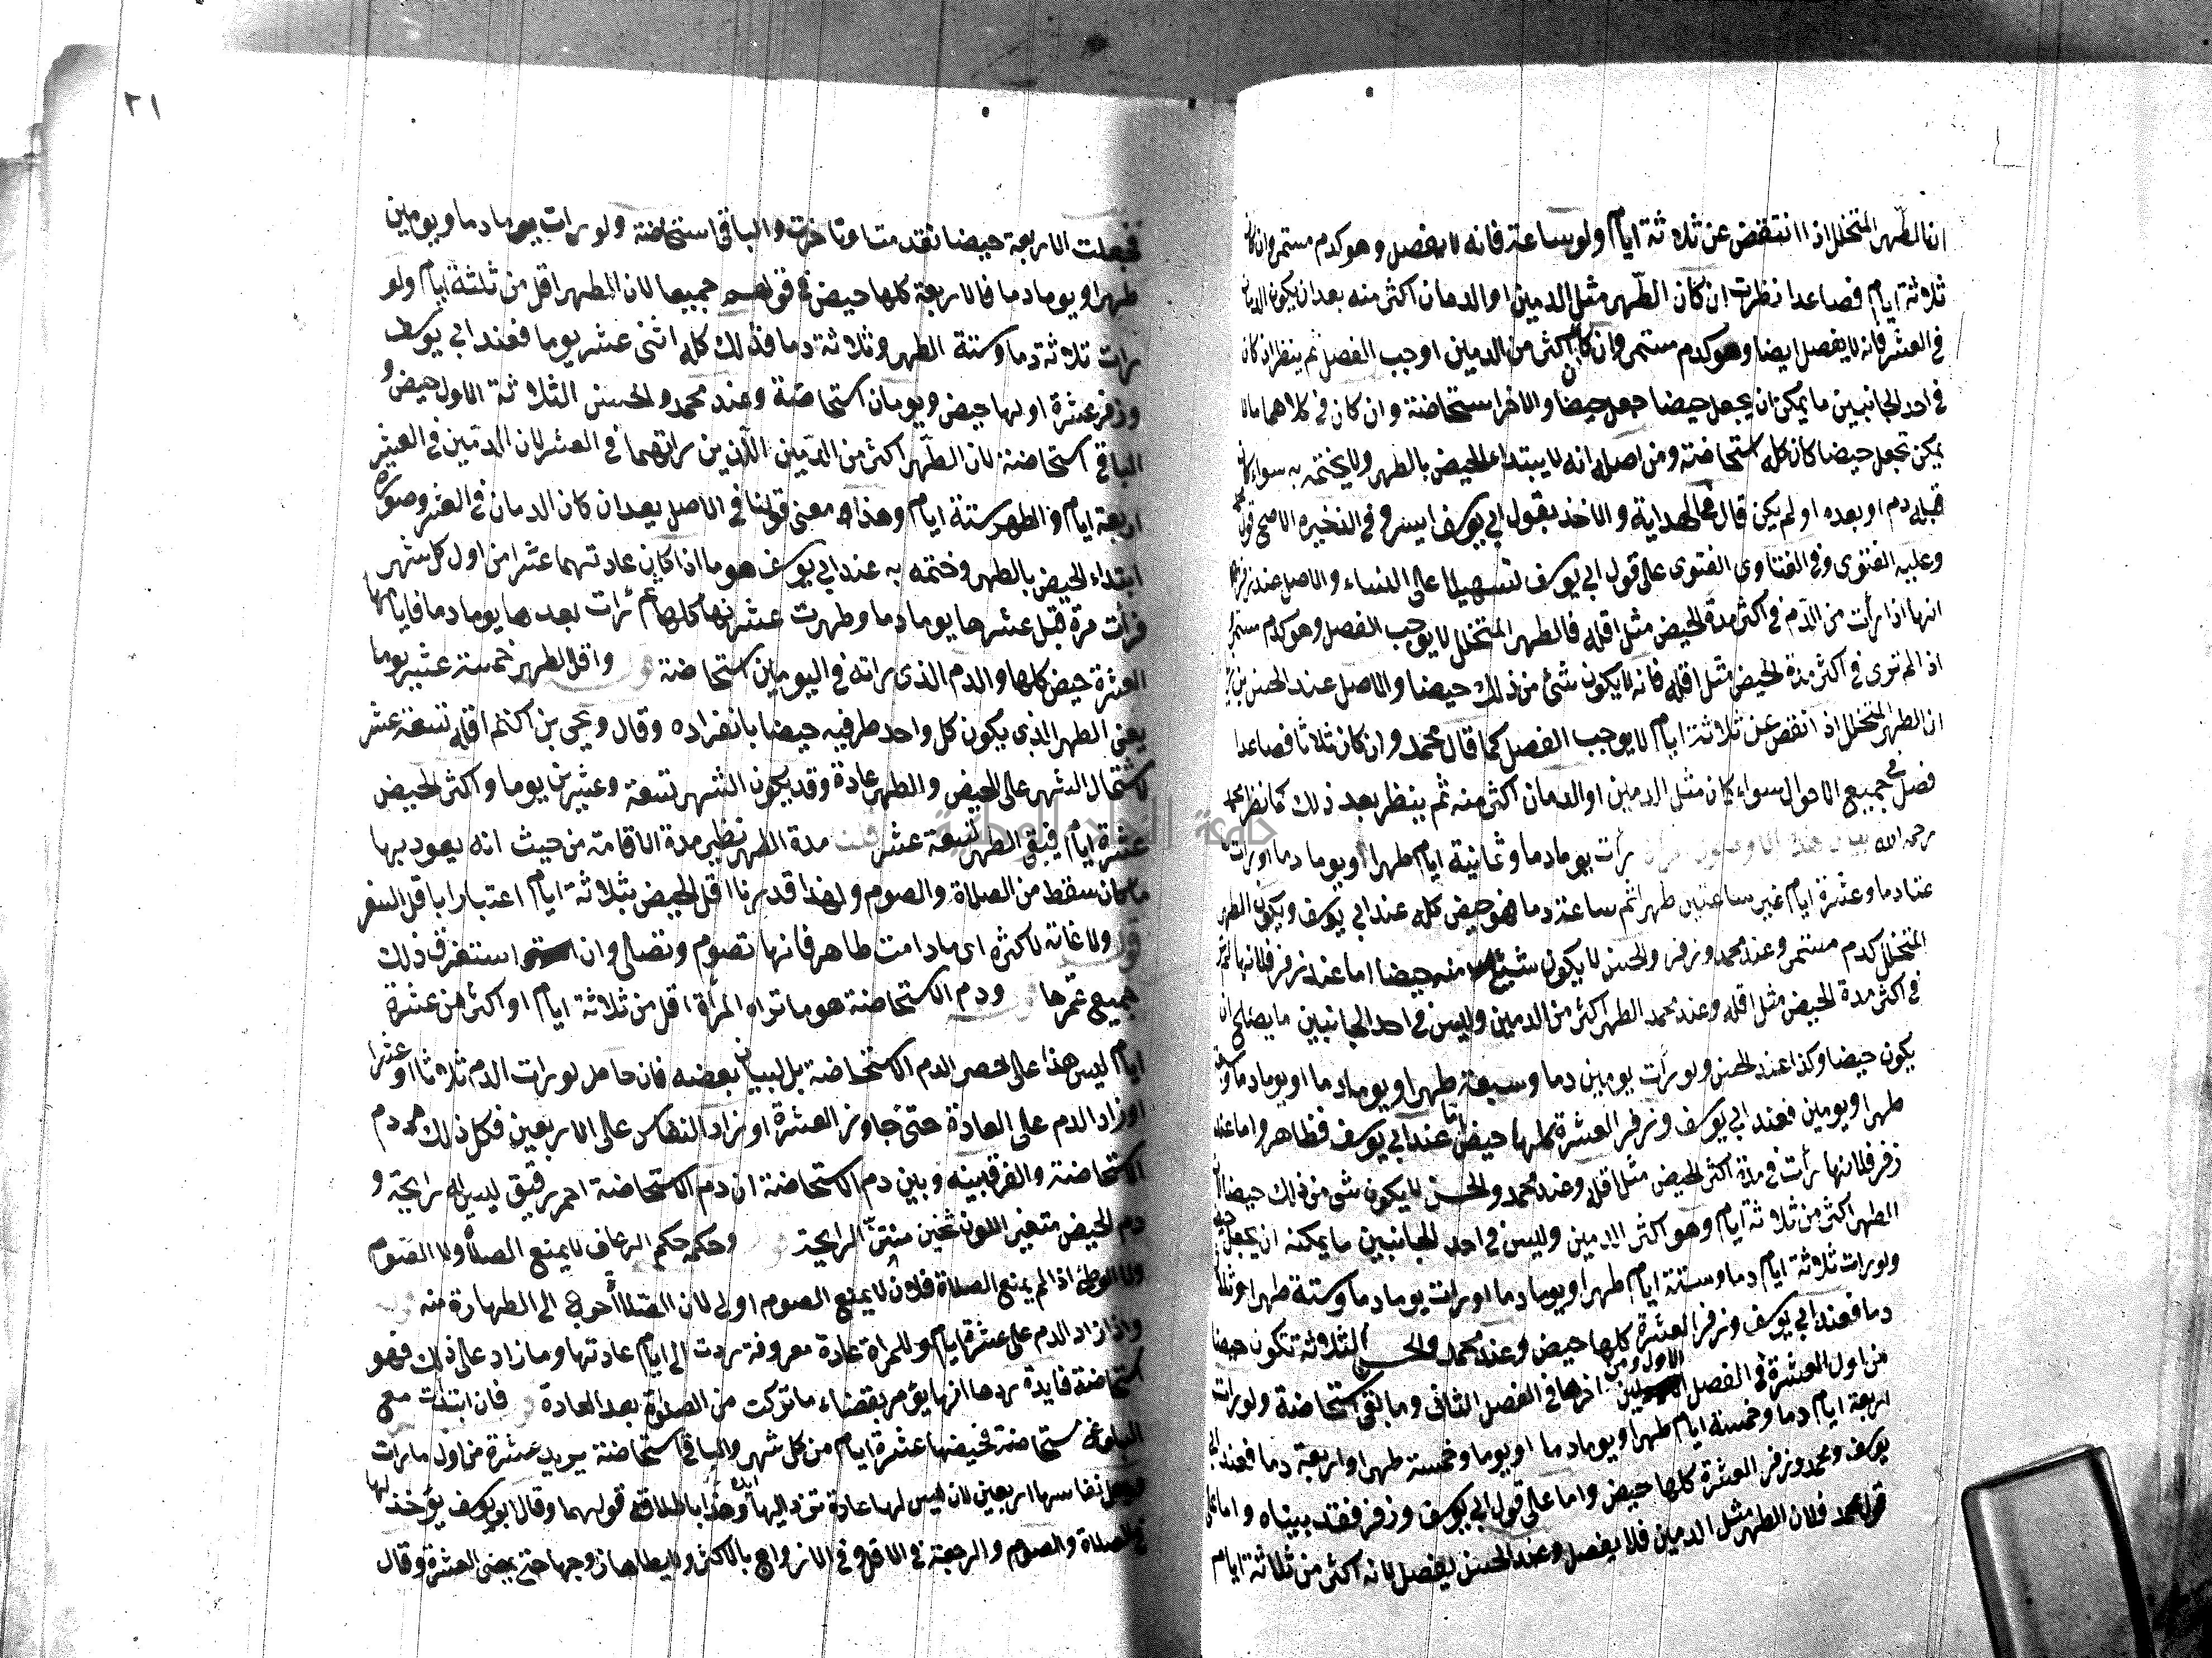 ان الطهر المتخلل اذا انتقض عن ثلاثة ايام ولو ساعة فانه لا يفصل وهو كدم مستمر وان كان
ثلاثة ايام فصاعدا نظرت ان كان الطهر مثل الدمين او الدمان اكثر منه بعد ان يكون الدمان
في العشر فانه لا يفصل ايضا وهو كدم مستمر وان كان اكثر من الدمين اوجب الفصل ثم ينظر ان كان
في احد الجانبين ما يمكن ان يجعل حيضا جعل حيضا والاخر استحاضة وان كان في كلاهما ما لا
يمكن تجعل حيضا كان كله استحاضة ومن اصله انه لا يبتدا الحيض بالطهر ولا يختمه به سواء كان
قبله دم او بعده او لم يكن قال في الهداية والاخذ بقول ابي يوسف ايسر وفي الذخيرة الاصح قول محمد
وعليه الفتوى وفي الفتاوي الفتوى على قول ابي يوسف تسهيلا على النساء والاصل عند زفر
انها اذا رأت من الدم في اكثر مدة الحيض مثل اقله فالطهر المتخلل لا يوجب الفصل وهو كدم مستمر
اذا لم ترى في اكثر مدة الحيض مثل اقله فانه لا يكون شئ من ذلك حيضا والاصل عند الحسن بن زياد
ان الطهر المتخلل اذا انقض عن ثلاثة ايام لا يوجب الفصل كما قال محمد وان كان ثلاثا فصاعدا
فصل في جميع الاحوال سواء كان مثل الدمين او الدمان اكثر منه ثم ينظر بعد ذلك كما نظر محمد
رحمه الله بيان هذه الاصول رأت يوما دما وثمانية ايام طهرا ويوما دما او رات
دما وعشرة ايام غير ساعتين طهرا ثم ساعة دما فهو حيض كله عند ابي يوسف ويكون الطهر
المتخلل كدم مستمر وعند محمد وزفر والحسن لا يكون شئ منه حيضا اما عند زفر فلانها لم تر
في اكثر مدة الحيض مثل اقله وعند محمد الطهر اكثر من الدمين وليس في احد الجانبين ما يصلح ان
يكون حيضا وكذا عند الحسن ولو رأت يومين دما وسبعة طهرا ويوما دما او يوما دما وسبعة
طهرا ويومين فعند ابي يوسف وزفر العشرة كلها حيض اما عند ابي يوسف فظاهر واما عند
زفر فلانها رأت في مدة اكثر الحيض مثل اقله وعند محمد والحسن لا يكون شئ من ذلك حيضا لان
الطهر اكثر من ثلاثة ايام وهو اكثر الدمين وليس في احد الجانبين ما يمكنه ان يجعل حيضا
ولو رات ثلاثة ايام دما وستة ايام طهرا ويوما دما او رات يوما دما وستة طهرا وثلاثة
دما فعند ابي يوسف وزفر العشرة كلها حيض وعند محمد والحسن الثلاثة تكون حيضا
من اول العشرة في الفصل الاول ومن اخرها في الفصل الثاني وما بقي استحاضة ولو رات
اربعة ايام دما وخمسة ايام طهرا ويوما دما او يوما وخمسة طهرا واربعة دما فعند ابي
يوسف ومحمد وزفر العشرة كلها حيض واما على قول ابي يوسف وزفر فقد بيناه واما على
قول محمد فلان الطهر مثل الدمين فلا يفصل وعند الحسن يفصل لانه اكثر من ثلاثة ايام
٢١
فجعلت الاربعة حيضا تقدمت او تاخرت والباقي استحاضة ولو رات يوما دما ويومين
طهرا ويوما دما فالاربعة كلها حيض في قولهم جميعا لان الطهر اقل من ثلثة ايام ولو
رات ثلاثة دما وستة الطهر وثلاثة دما فذلك كله اثنى عشر يوما فعند ابي يوسف
وزفر عشرة اولها حيض ويومان استحاضة وعند محمد والحسن الثلاثة الاول حيض و
الباقي استحاضة لان الطهر اكثر من الدمين الذين راتهما في العشر لان الدمين في العشر
اربعة ايام والطهر ستة ايام وهذا معنى قولنا في الاصل بعد ان كان الدمان في العشر وصورة
ابتداء الحيض بالطهر وختمه به عند ابي يوسف هو ما اذا كان عادتهما عشرا من اول كل شهر
فرأت مرة قبل عشرها يوما دما وطهرت عشرتها كلها ثم رأت بعدها يوما دما فايامها
العشرة حيض كلها والدم الذي راته في اليومين استحاضة واقل الطهر خمسة عشر يوما
يعني الطهر الذي يكون كل واحد طرفيه حيضا بانفراده وقال ويحي بن اكثم اقله تسعة عشر
لاشتمال الشهر على الحيض والطهر عادة وقد يكون الشهر تسعة وعشرين يوما واكثر الحيض
عشرة ايام فيبقى الطهر تسعة عشر قلت مدة الطهر نظير مدة الاقامة من حيث انه يعود بها
ما كان سقط من الصلاة والصوم ولهذا قدرنا اقل الحيض بثلاثة ايام اعتبارا باقل السفر
ولا غاية لاكثره اي مادامت طاهر فانها تصوم وتصلي وان استغرق ذلك
جميع عمرها ودم الاستحاضة هو ما تراه المرأة اقل من ثلاثة ايام او اكثر من عشرة
ايام ليس هذا على حصر الدم الاستحاضة بل لبيان بعضه فان حامل لو رات الدم ثلاثا او عشرا
او زاد الدم على العادة حتى جاوز العشرة او زاد النفاس على الاربعين فكل ذلك دم
الاستحاضة والفرق بينه وبين دم الاستحاضة ان دم الاستحاضة احمر رقيق ليس له رايحة و
دم الحيض متغير اللون ثخين منتن الرايحة وحكمه حكم الرعاف لا يمنع الصلاة ولا الصوم
ولا الوطئ اذا لم يمنع الصلاة فلان لا يمنع الصوم اولى لان الصلاة احوج الى الطهارة منه
واذا زاد الدم على عشرة ايام وللمراة عادة معروفة ردت الى ايام عادتها وما زاد على ذلك فهو
استحاضة فايدة ردها انها يؤمر بقضاء ما تركت من الصلوة بعد العادة فان ابتدات مع
البلوغ مستحاضة فحيضها عشرة ايام من كل شهر والباقي استحاضة يريد عشرة من اول ما رات
نفاسها اربعين لان ليس لها عادة ترد اليها وهذا باطلاقه قولهما وقال ابو يوسف يؤخذ لها
في الصلاة والصوم والرجعة في الاقل وفي الازواج بالاكثر ولا يطاها زوجها حتى يمضى العشرة وقال